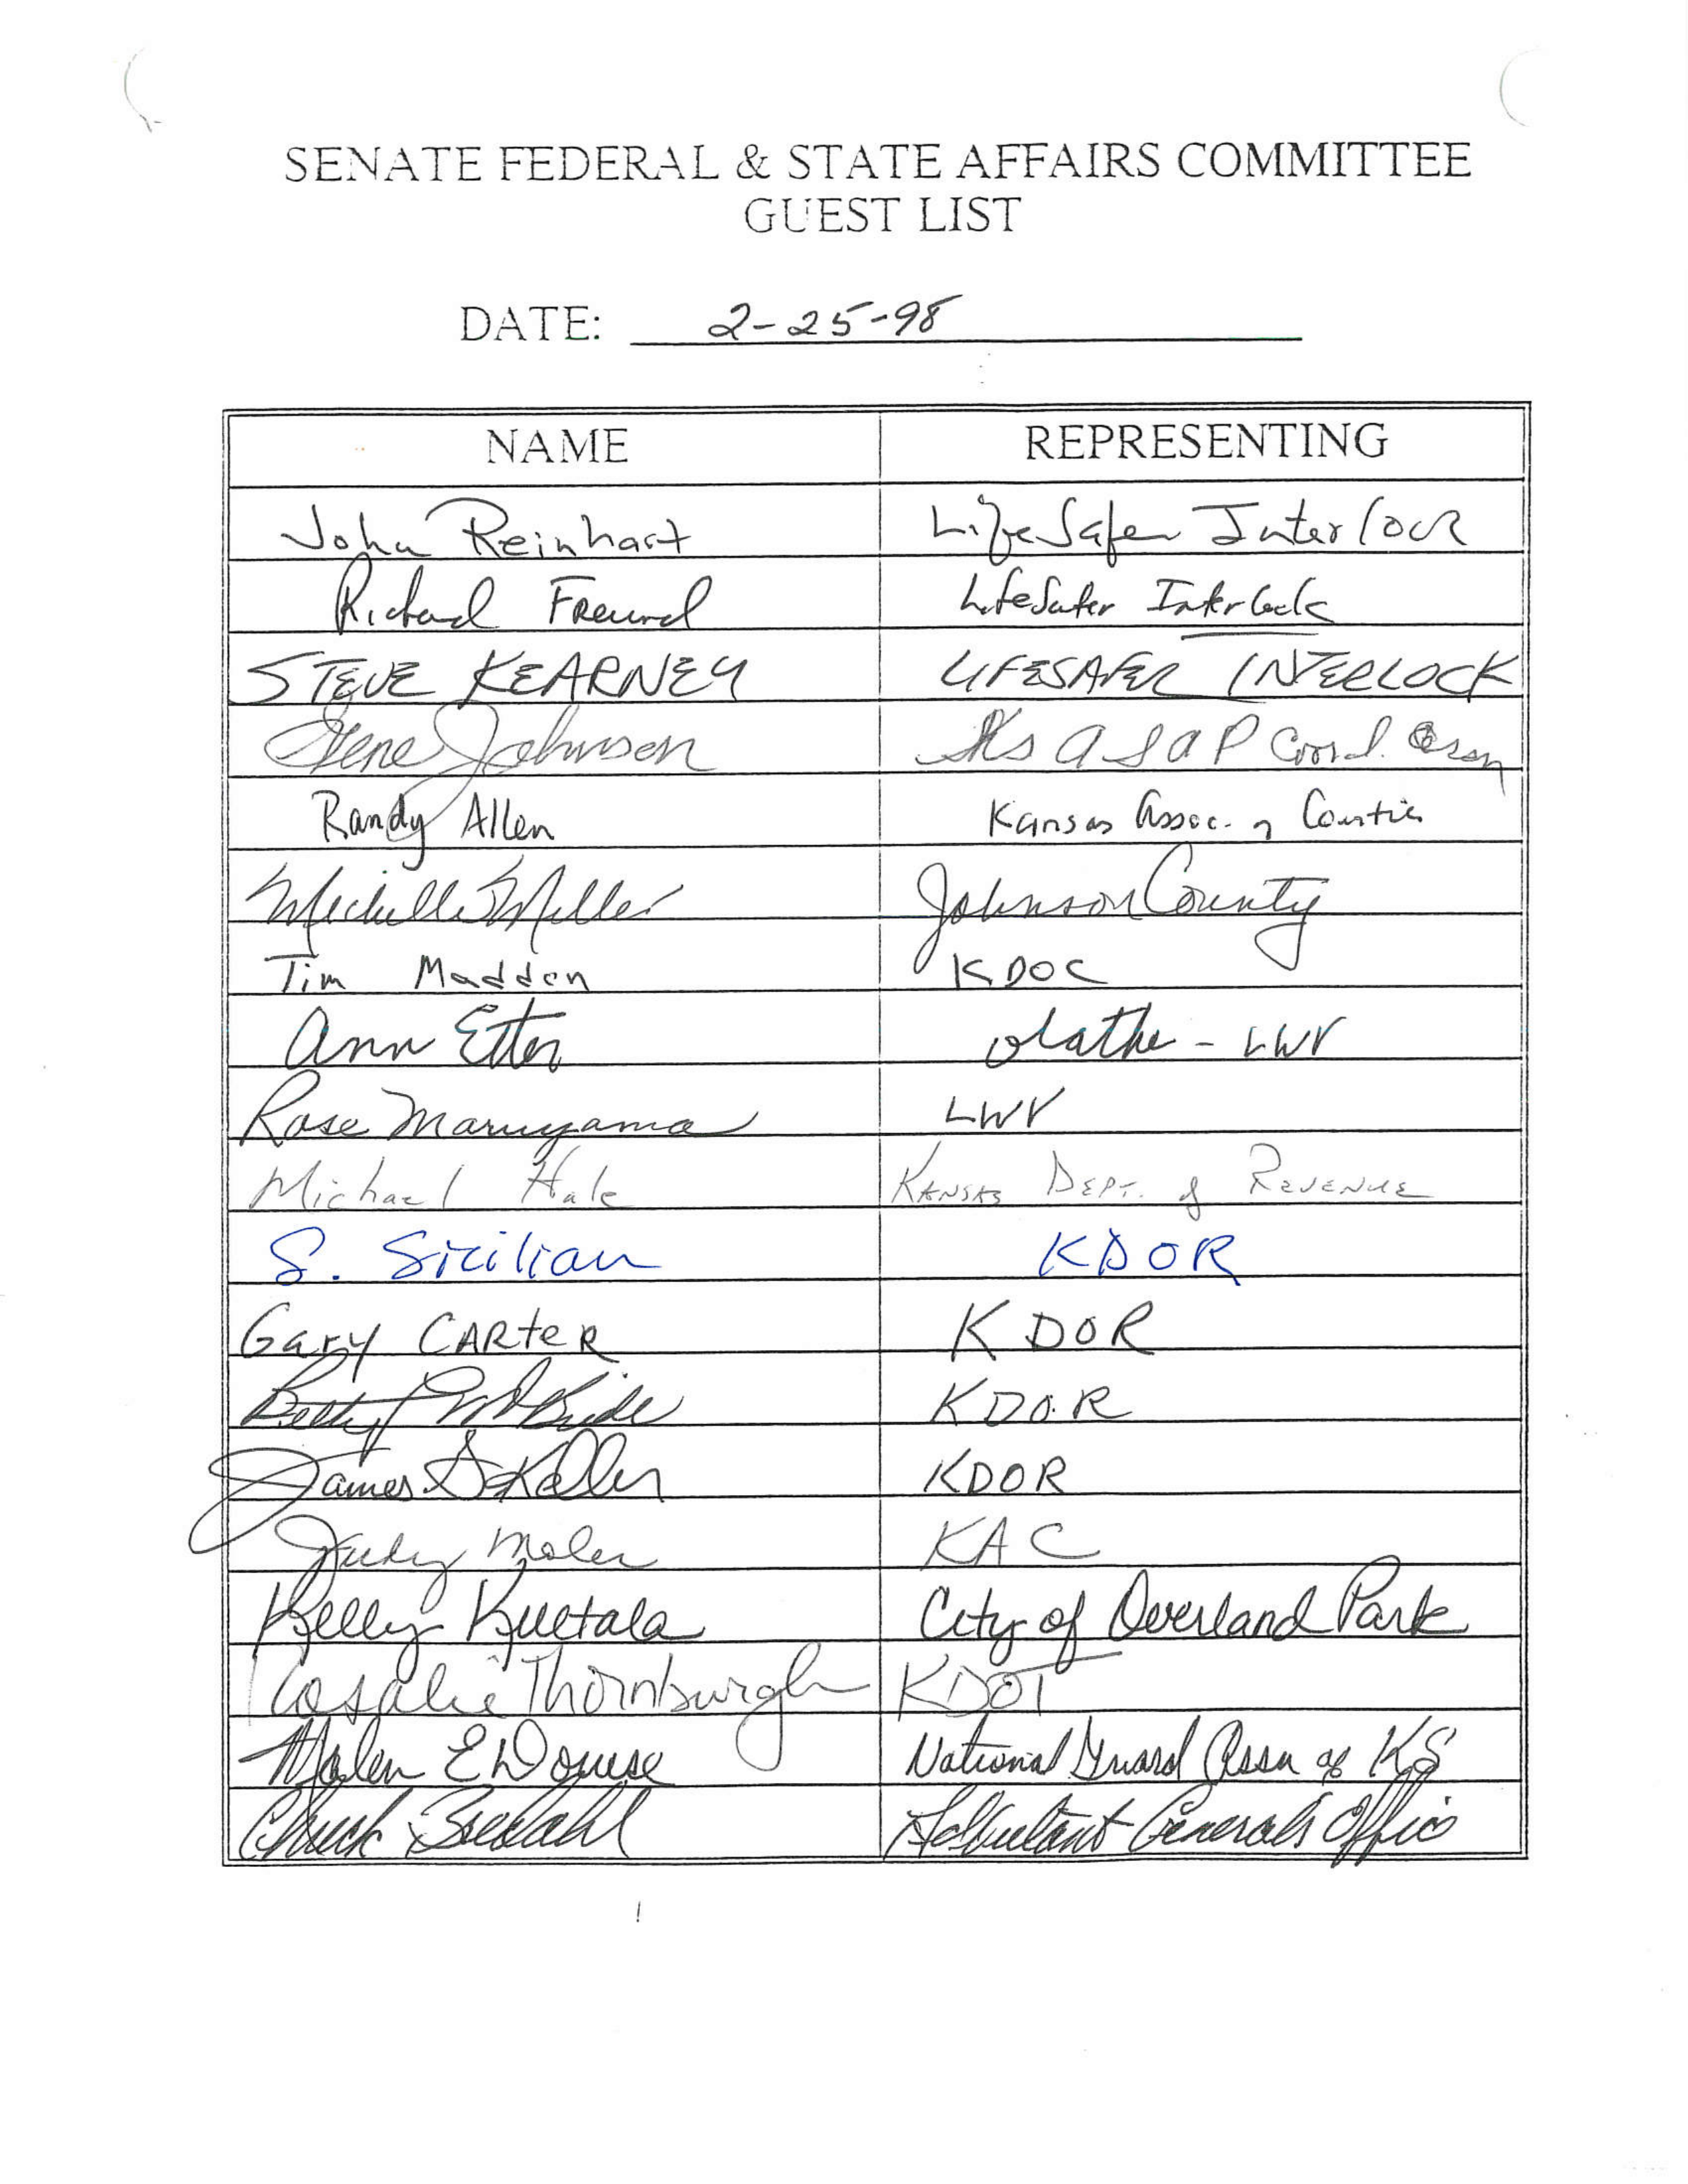 SENATE FEDERAL & STATE AFFAIRS COMMITTEE
GUEST LIST
DATE: 2-25-98
NAME REPRESENTING
John Reinhart LifeSafer Interlock
Richard Freund LifeSafer Interlock
STEVE KEARNEY LIFESAFER INTERLOCK
Gene Johnson Ks ASAP Coord. Assn
Randy Allen Kansas Assoc. of Counties
Michelle Miller Johnson County
Tim Madden KDOC
Ann Etter Olathe - LWV
Rose Maruyama LWV
Michael Hale KANSAS DEPT. of REVENUE
S. Sicilian KDOR
Gary CARTER KDOR
Betty McBride KDOR
James G Keller KDOR
Judy Moler KAC
Kelly Kultala City of Overland Park
Rosalie Thornburgh KDOT
National Guard Assn of KS
Chuck Bredahl Adjutant Generals Office